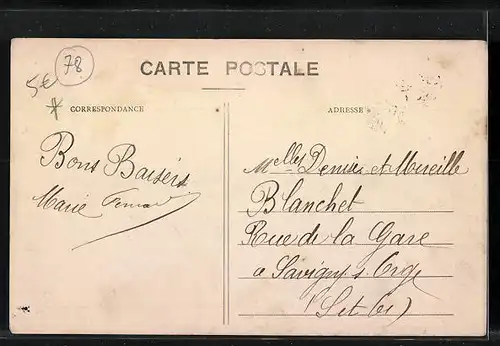 78
5€
CARTE POSTALE
CORRESPONDANCE
ADRESSE
Bons Baisers
Marie
Melles Denise et Mireille
Blanchet
Rue de la Gare
à Savigny s. Orge
(Set O)